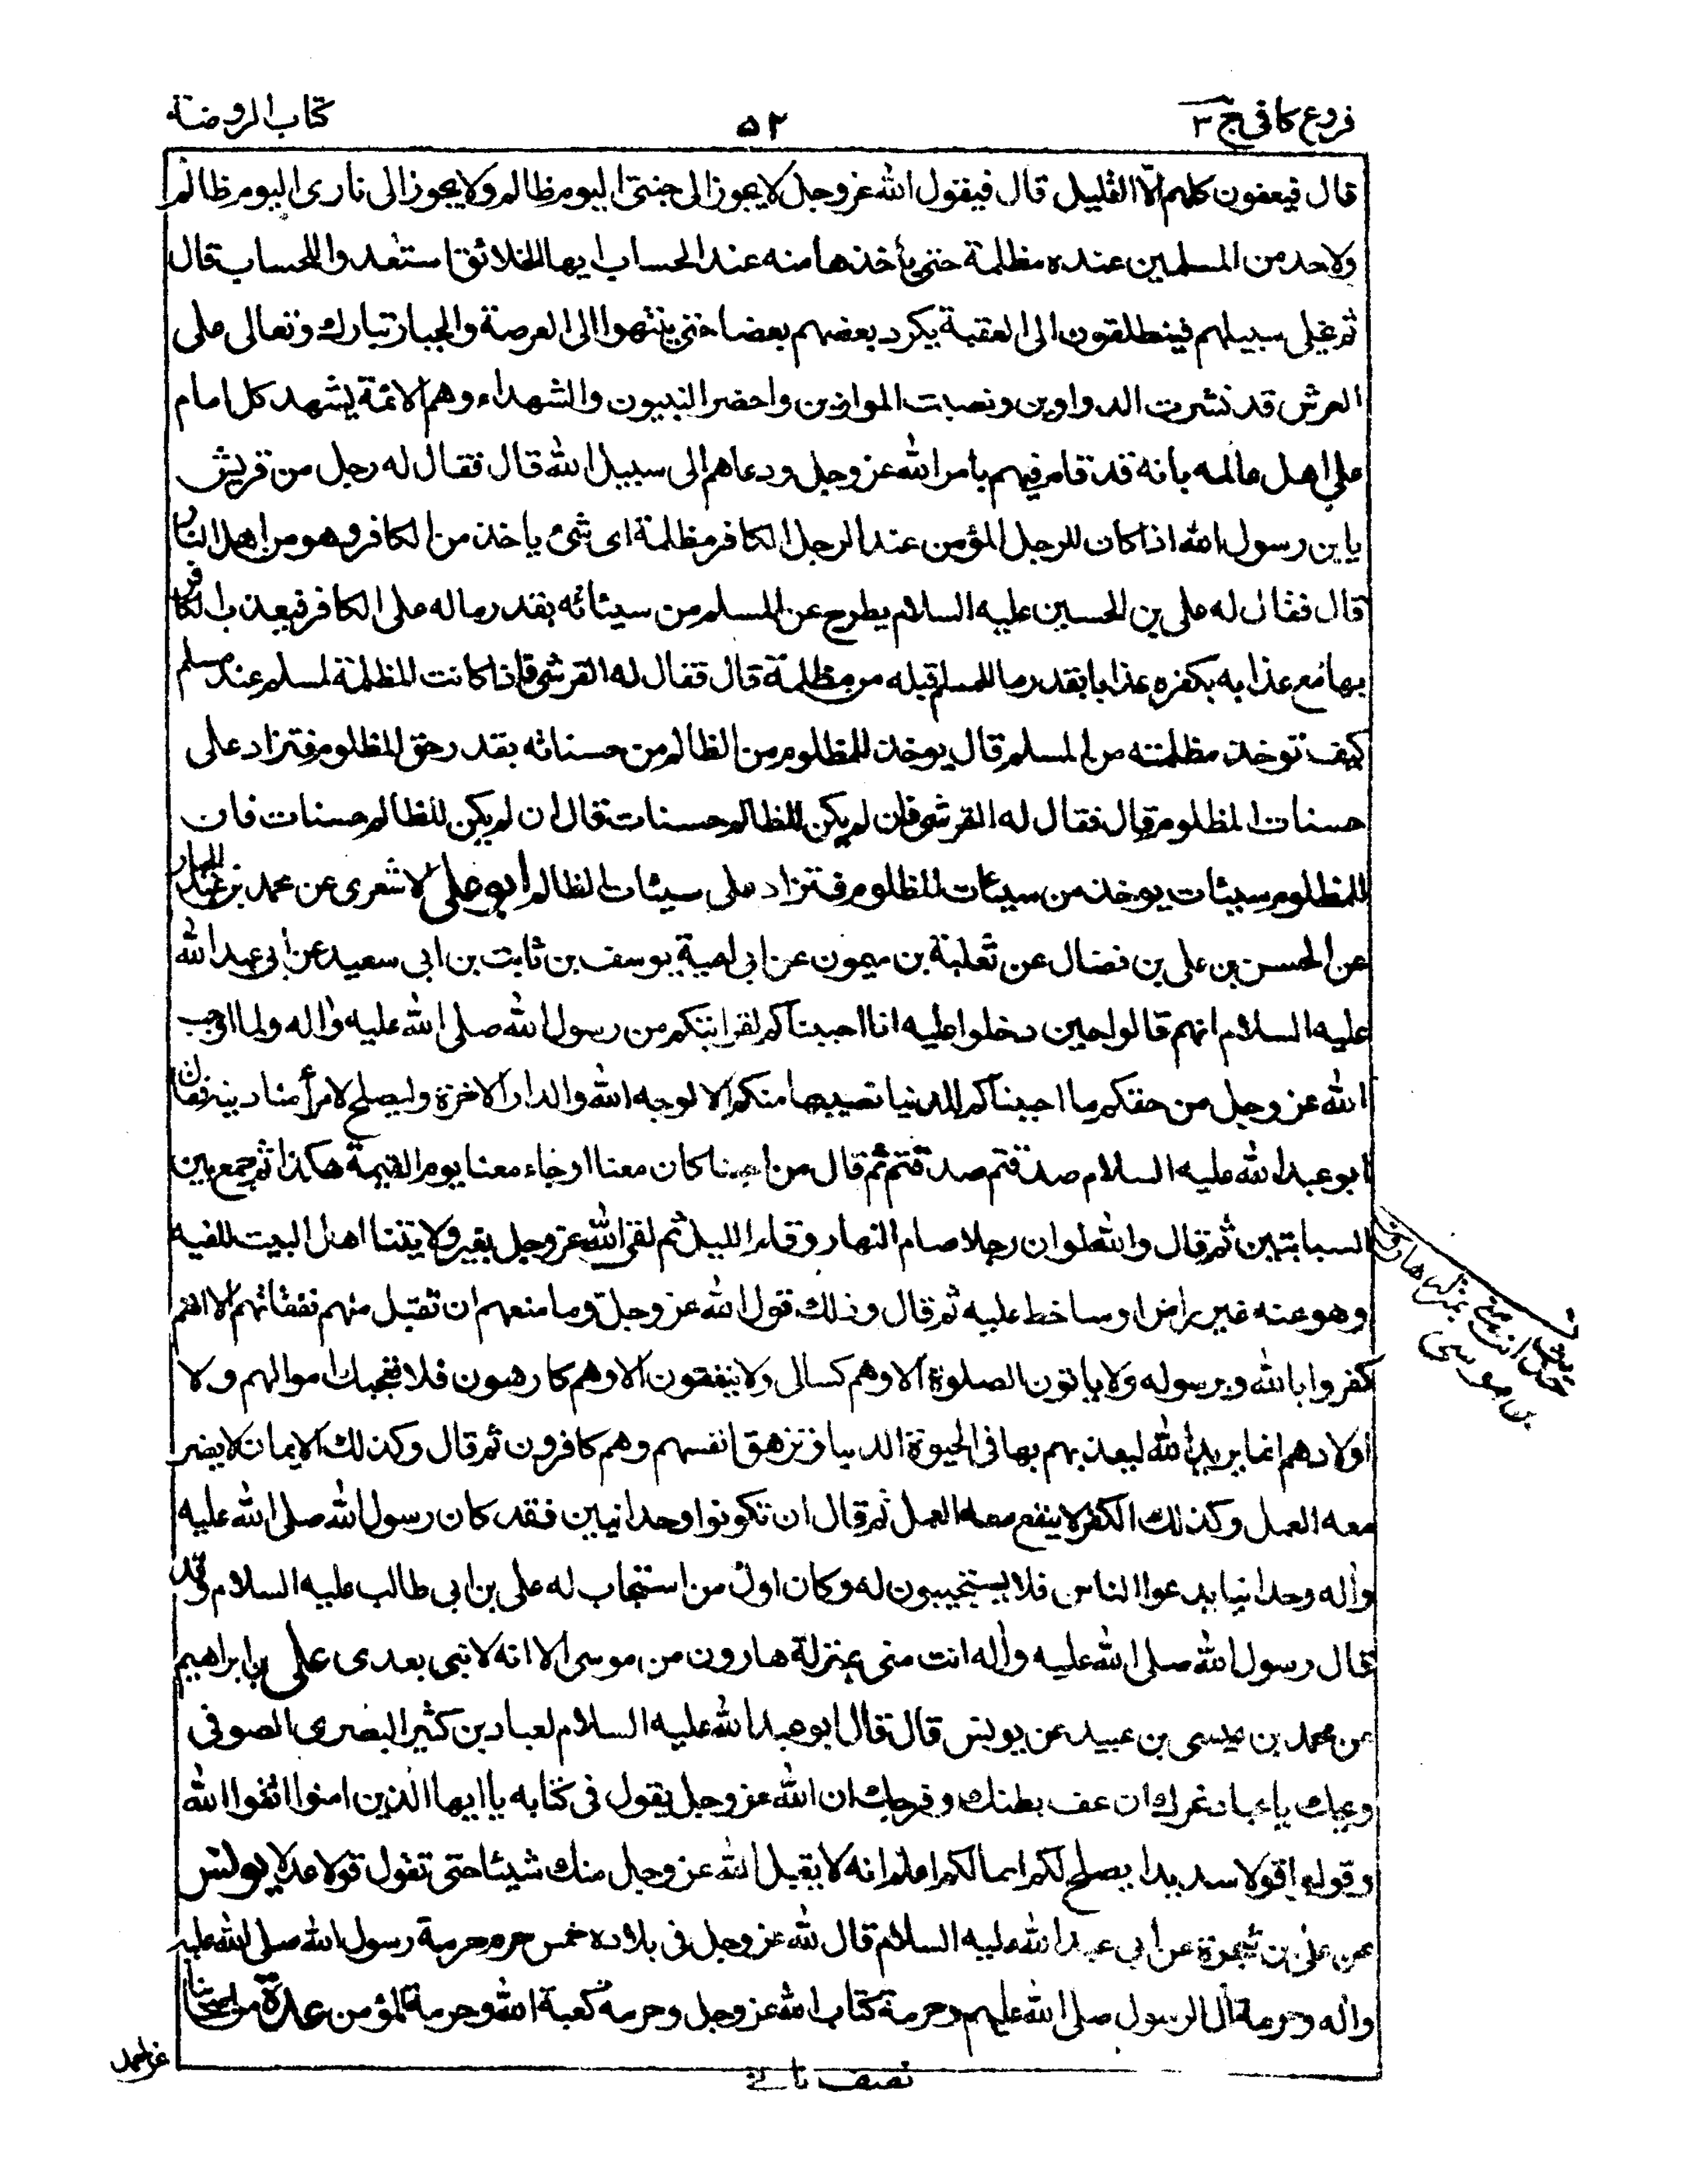 فروع كافي ج ٣
٥٢
كتاب الروضة
قال فيعفون كلهم الّا القليل قال فيقول الله عز وجل لا يجوز الى جنتى اليوم ظالم ولا يجوز الى نارى اليوم ظالم
ولاحد من المسلمين عنده مظلمة حتى يأخذها منه عند الحساب ايها الخلائق استعدوا للحساب قال
ثم يخلى سبيلهم فينطلقون الى العقبة يكرد بعضهم بعضا حتى ينتهوا الى العرصة والجبار تبارك وتعالى على
العرش قد نشرت الدواوين ونصبت الموازين واحضر النبيون والشهداء وهم الائمة يشهد كل امام
على اهل عالمه بانه قد قام فيهم بامر الله عز وجل ودعاهم الى سبيل الله قال فقال له رجل من قريش
يا بن رسول الله اذا كان للرجل المؤمن عند الرجل الكافر مظلمة اى شئ ياخذ من الكافر وهو من اهل النار
قال فقال له على بن الحسين عليه السلام يطرح عن المسلم من سيئاته بقدر ماله على الكافر فيعذب الكافر
بها مع عذابه بكفره عذابا بقدر ما للمسلم قبله من مظلمة قال فقال له القرشى فاذا كانت المظلمة لمسلم عند مسلم
كيف توخذ مظلمته من المسلم قال يوخذ للمظلوم من الظالم من حسناته بقدر حق المظلوم فتزاد على
حسنات المظلوم قال فقال له القرشى فان لم يكن للظالم حسنات قال ان لم يكن للظالم حسنات فان
للمظلوم سيئات يوخذ من سيئات المظلوم فتزاد على سيئات الظالم ابو على الاشعرى عن محمد بن عبد الجبار
عن الحسن بن على بن فضال عن ثعلبة بن ميمون عن ابى امية يوسف بن ثابت بن ابى سعيد عن ابى عبد الله
عليه السلام انهم قالوا حين دخلوا عليه انا احببناكم لقرابتكم من رسول الله صلى الله عليه واله ولما اوجب
الله عز وجل من حقكم ما احببناكم للدنيا نصيبها منكم الا لوجه الله والدار الاخرة وليصلح لامرأ منا دينه فقال
ابو عبد الله عليه السلام صدقتم صدقتم ثم قال من احبنا كان معنا او جاء معنا يوم القيمة هكذا ثم جمع بين
السبابتين ثم قال والله لو ان رجلا صام النهار وقام الليل ثم لقى الله عز وجل بغير ولايتنا اهل البيت للقيه
وهو عنه غير راض او ساخط عليه ثم قال وذلك قول الله عز وجل وما منعهم ان تقبل منهم نفقاتهم الا انهم
كفروا بالله وبرسوله ولا ياتون الصلوة الا وهم كسالى ولا ينفقون الا وهم كارهون فلا تعجبك اموالهم ولا
اولادهم انما يريد الله ليعذبهم بها فى الحيوة الدنيا وتزهق انفسهم وهم كافرون ثم قال وكذلك الايمان لا يضر
معه العمل وكذلك الكفر لا ينفع معه العمل ثم قال ان تكونوا وحدانيين فقد كان رسول الله صلى الله عليه
واله وحدانيا يدعوا الناس فلا يستجيبون له وكان اول من استجاب له على بن ابى طالب عليه السلام وقد
قال رسول الله صلى الله عليه واله انت منى بمنزلة هارون من موسى الا انه لا نبى بعدى على بن ابراهيم
عن محمد بن عيسى بن عبيد عن يونس قال قال ابو عبد الله عليه السلام لعباد بن كثير البصرى الصوفى
ويحك يا عباد غرك ان عف بطنك وفرجك ان الله عز وجل يقول فى كتابه يا ايها الذين امنوا اتقوا الله
وقولوا قولا سديدا يصلح لكم اعمالكم اعلم انه لا يقبل الله عز وجل منك شيئا حتى تقول قولا عدلا يونس
عن على بن شجرة عن ابى عبد الله عليه السلام قال لله عز وجل فى بلاده خمس حرم حرمة رسول الله صلى الله عليه
واله وحرمة ال الرسول صلى الله عليهم وحرمة كتاب الله عز وجل وحرمة كعبة الله وحرمة المؤمن عدة من اصحابنا
حديث انت منى بمنزله هارون
من موسى
عن احمد
نصف ثانى